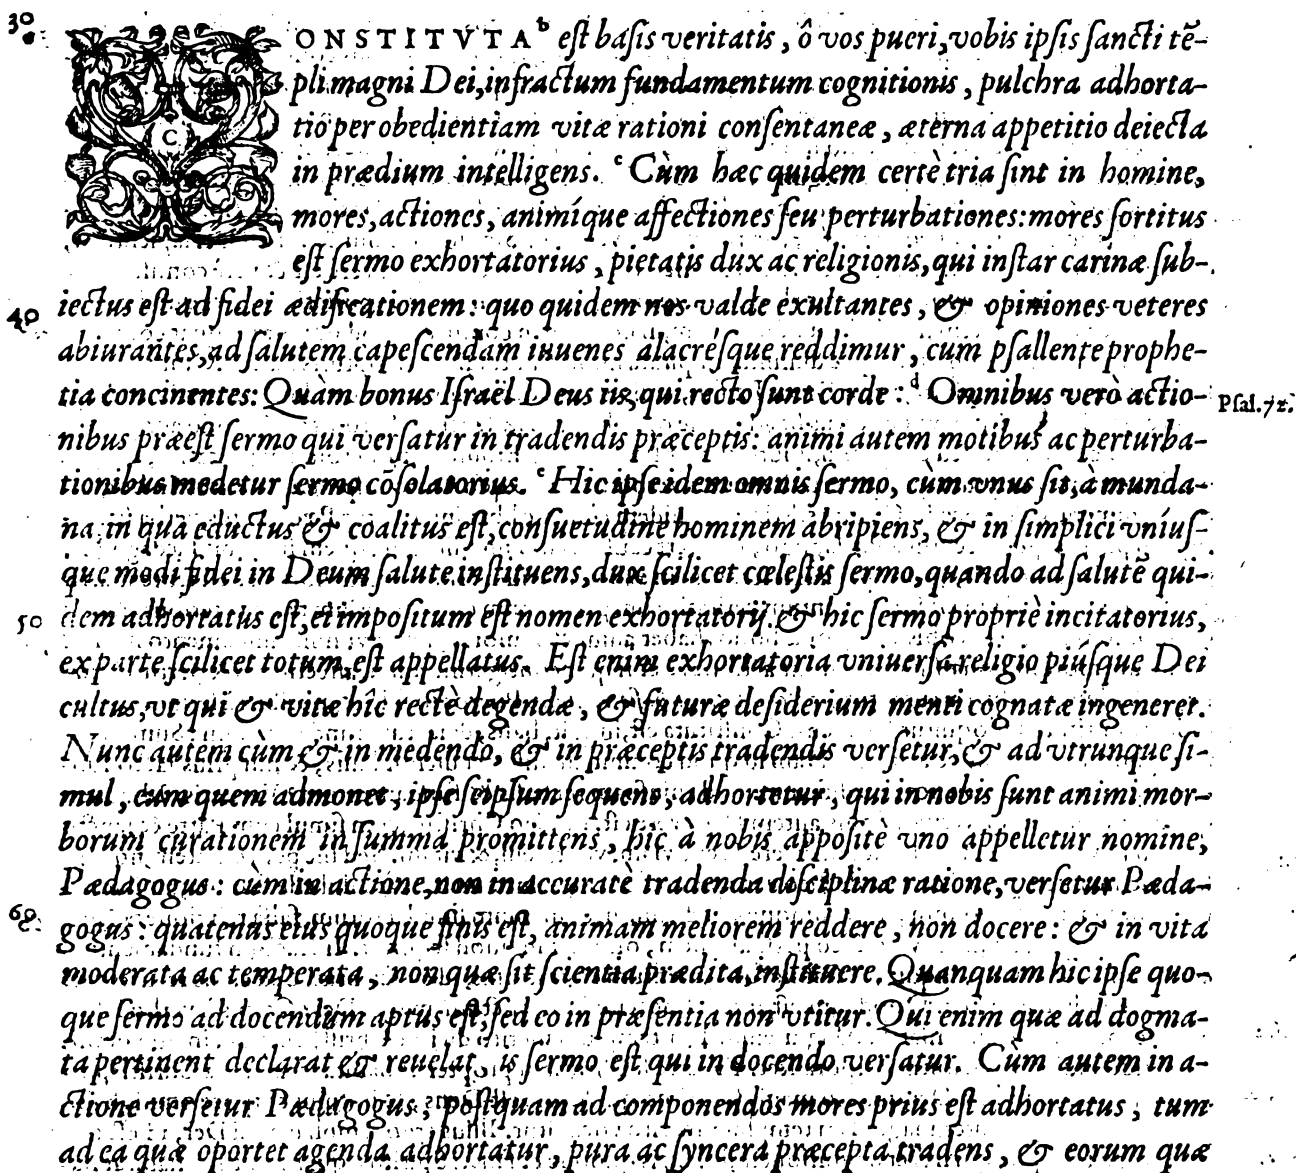 30 CONSTITVTA b eſt baſis veritatis, ô vos pueri, vobis ipſis ſancti tē-
pli magni Dei, infractum fundamentum cognitionis, pulchra adhorta-
tio per obedientiam vitæ rationi conſentaneæ, æterna appetitio deiecta
in prædium intelligens. c Cùm hæc quidem certè tria ſint in homine,
mores, actiones, animíque affectiones ſeu perturbationes: mores ſortitus
eſt ſermo exhortatorius, pietatis dux ac religionis, qui inſtar carinæ ſub-
40 iectus eſt ad fidei ædificationem: quo quidem nos valde exultantes, & opiniones veteres
abiurantes, ad ſalutem capeſcendam iuuenes alacréſque reddimur, cum pſallente prophe-
tia concinentes: Quàm bonus Iſraël Deus iis, qui recto ſunt corde: d Omnibus verò actio- Pſal. 72.
nibus præeſt ſermo qui verſatur in tradendis præceptis: animi autem motibus ac perturba-
tionibus medetur ſermo cōſolatorius. e Hic ipſe idem omnis ſermo, cùm vnus ſit, à munda-
na, in qua eductus & coalitus eſt, conſuetudine hominem abripiens, & in ſimplici vníuſ-
que modi fidei in Deum ſalute inſtituens, dux ſcilicet cœleſtis ſermo, quando ad ſalutē qui-
50 dem adhortatus eſt, ei impoſitum eſt nomen exhortatorij, & hic ſermo propriè incitatorius,
ex parte ſcilicet totum, eſt appellatus. Eſt enim exhortatoria vniuerſa religio piúſque Dei
cultus, vt qui & vitæ hîc rectè degendæ, & futuræ deſiderium menti cognatæ ingeneret.
Nunc autem cùm & in medendo, & in præceptis tradendis verſetur, & ad vtrunque ſi-
mul, cùm quem admonet, ipſe ſeipſum ſequens, adhortetur, qui in nobis ſunt animi mor-
borum curationem in ſumma promittens, hic à nobis appoſitè vno appelletur nomine,
Pædagogus: cùm in actione, non in accurate tradenda diſciplinæ ratione, verſetur Pæda-
60 gogus: quatenus eius quoque finis eſt, animam meliorem reddere, non docere: & in vita
moderata ac temperata, non quæ ſit ſcientia prædita, inſtituere. Quanquam hic ipſe quo-
que ſermo ad docendum aptus eſt, ſed eo in præſentia non vtitur. Qui enim quæ ad dogma-
ta pertinent declarat & reuelat, is ſermo eſt qui in docendo verſatur. Cùm autem in a-
ctione verſetur Pædagogus, poſtquam ad componendos mores prius eſt adhortatus, tum
ad ea quæ oportet agenda adhortatur, pura ac ſyncera præcepta tradens, & eorum quæ